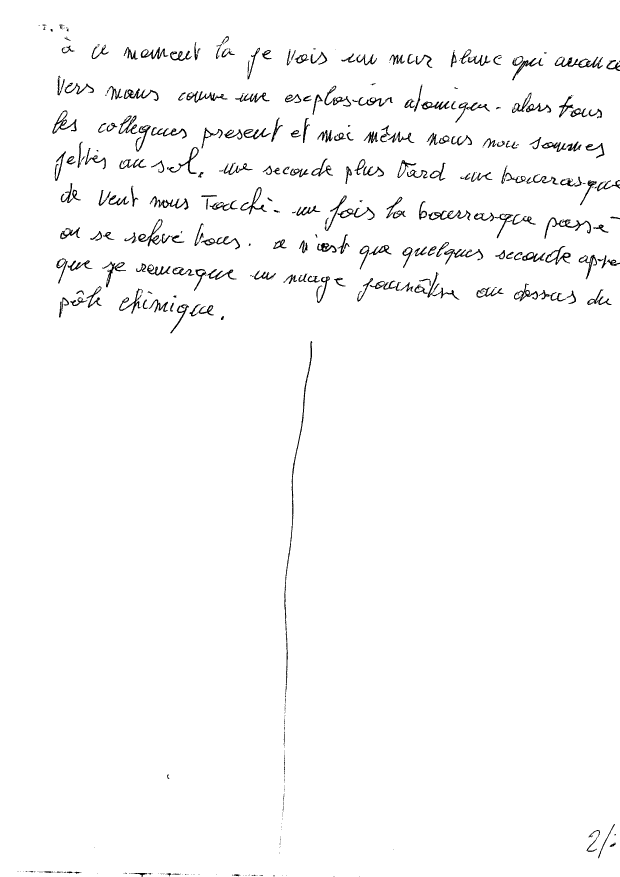 à ce moment la je vois un mur pluie qui avance
vers nous comme une esplosion atomique. alors tous
les collegues present et moi même nous nou sommes
jettés au sol. une seconde plus tard une bourrasque
de vent nous Touché. une fois la bourrasque passé
on se relevé tous. ce n'est que quelques seconde apre
que je remarque un nuage jaunâtre au dessus du
pôle chimique.
2/